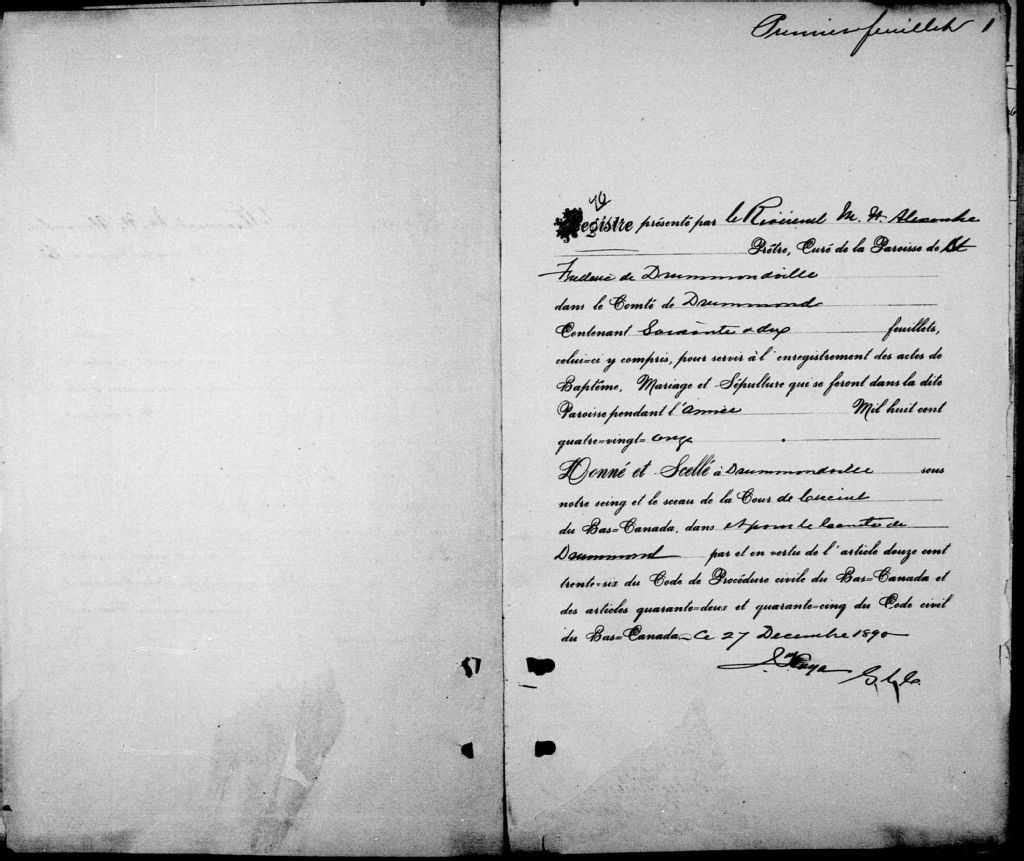 Premier feuillet 1
Registre présenté par le Révérend M. H. Alexandre
Prêtre, Curé de la Paroisse de St
Frederic de Drummondville
dans le Comté de Drummond
Contenant Soixante & dix feuillets,
celui=ci y compris, pour servir à l'enregistrement des actes de
Baptême, Mariage et Sépulture qui se feront dans la dite
Paroisse pendant l'année Mil huit cent
quatre=vingt= onze
Donné et Scellé à Drummondville sous
notre seing et le sceau de la Cour de Circuit
du Bas=Canada, dans et pour le Comté de
Drummond par et en vertu de l'article douze cent
trente=six du Code de Procédure civile du Bas=Canada et
des articles quarante=deux et quarante=cinq du Code civil
du Bas=Canada Ce 27 Decembre 1890